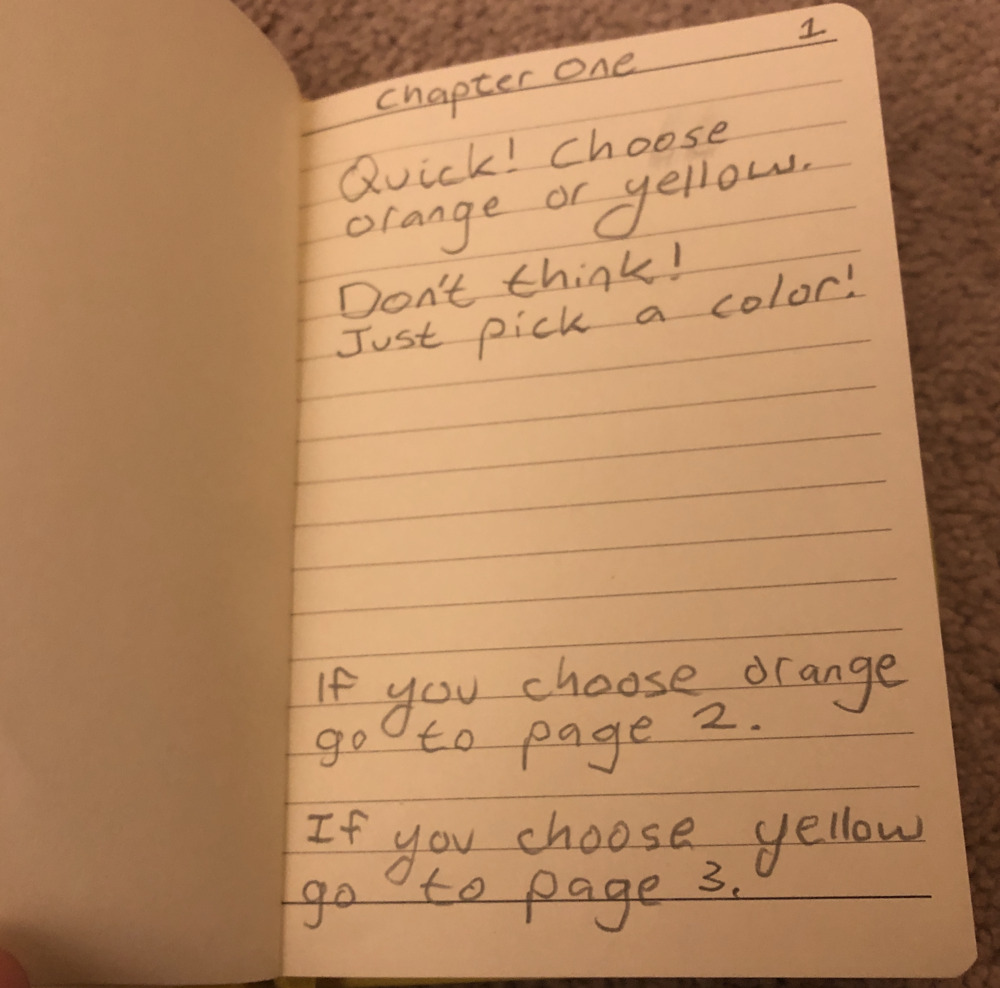 1
Chapter One
Quick! Choose
orange or yellow.
Don't think!
Just pick a color!
If you choose orange
go to page 2.
If you choose yellow
go to page 3.